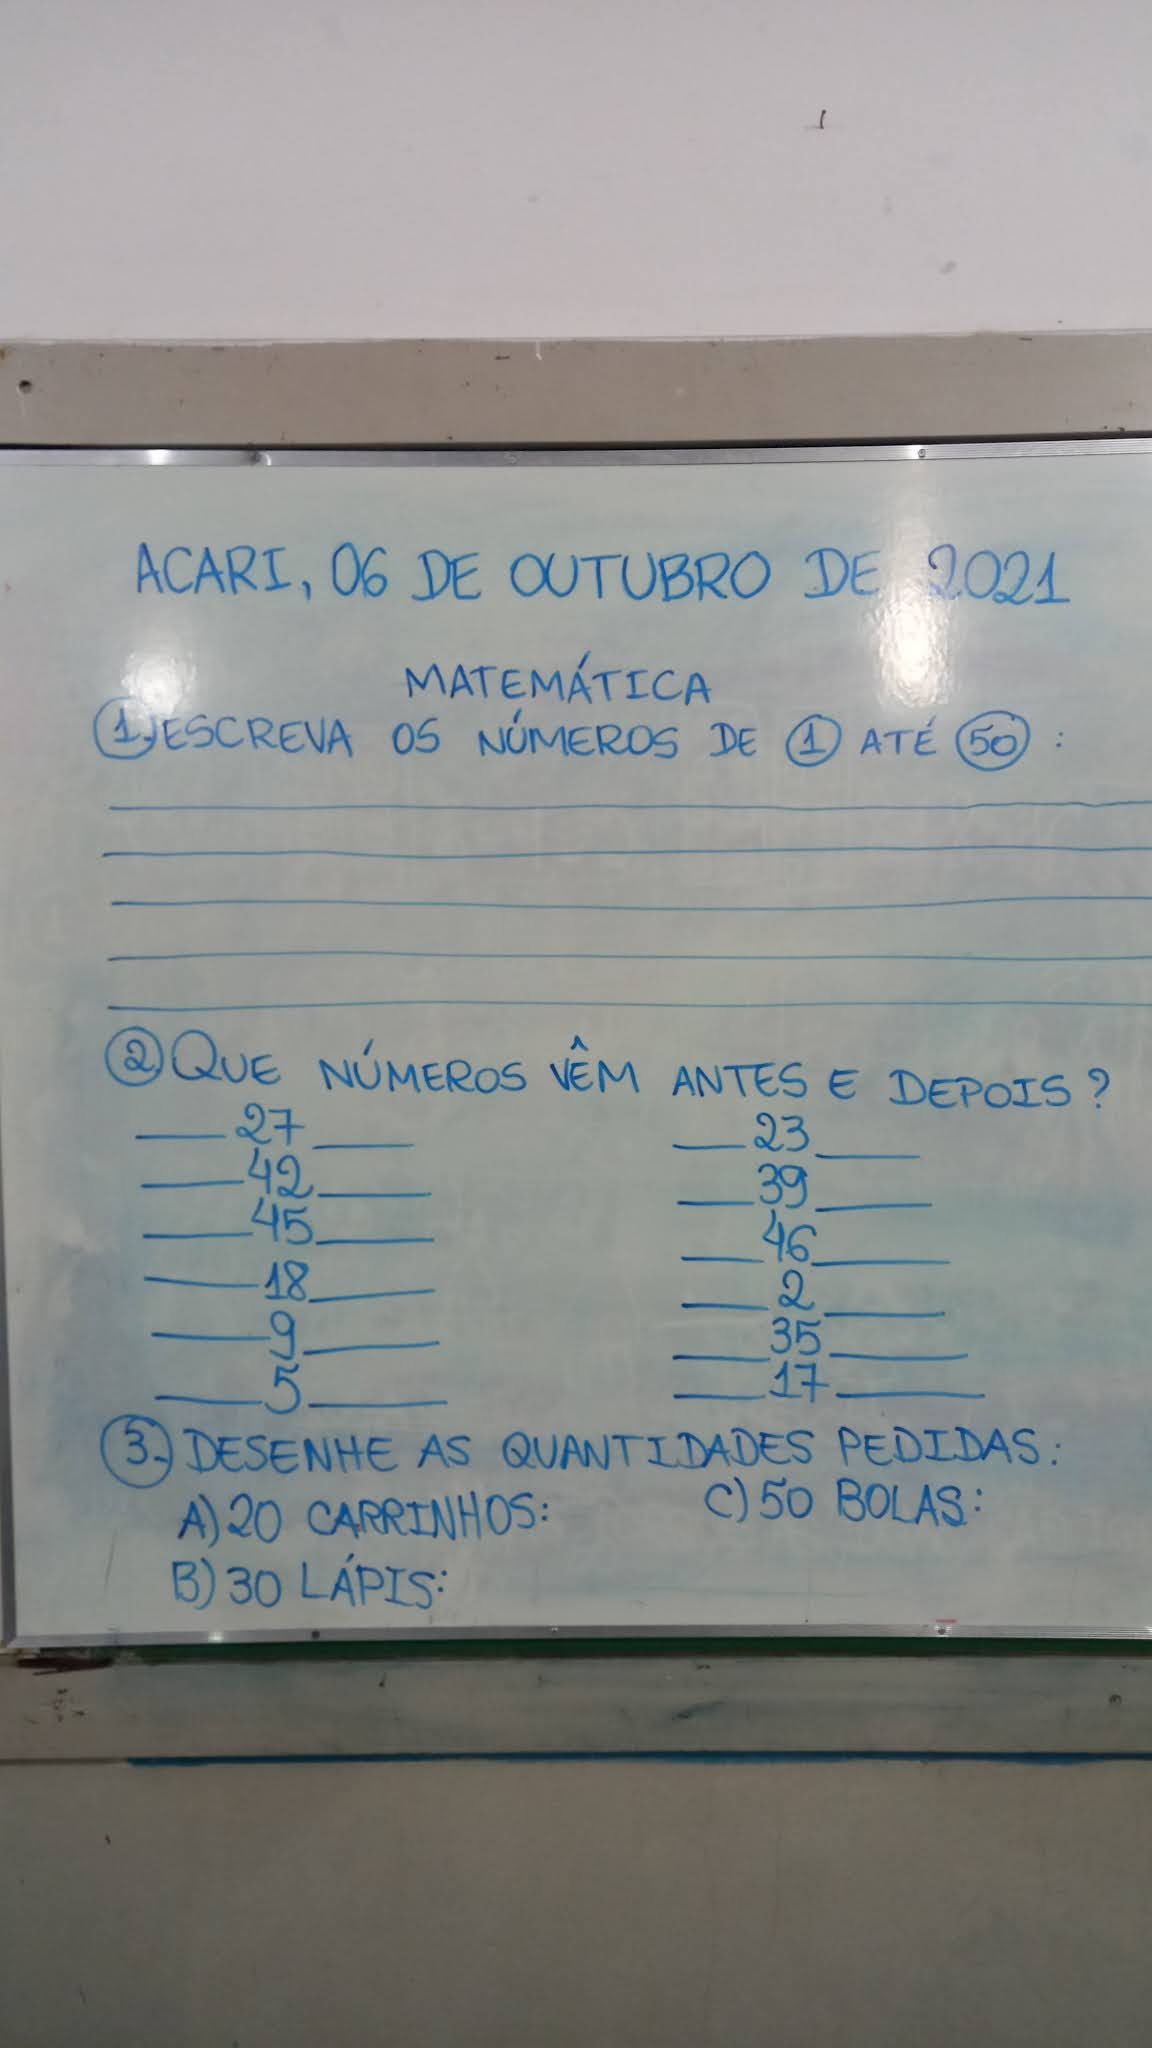 ACARI, 06 DE OUTUBRO DE 2021
MATEMÁTICA
1. ESCREVA OS NÚMEROS DE 1 ATÉ 50 :
2 QUE NÚMEROS VÊM ANTES E DEPOIS?
___ 27 ___ ___ 23 ___
___ 42 ___ ___ 39 ___
___ 45 ___ ___ 46 ___
___ 18 ___ ___ 2 ___
___ 9 ___ ___ 35 ___
___ 5 ___ ___ 17 ___
3. DESENHE AS QUANTIDADES PEDIDAS:
A) 20 CARRINHOS: C) 50 BOLAS:
B) 30 LÁPIS: